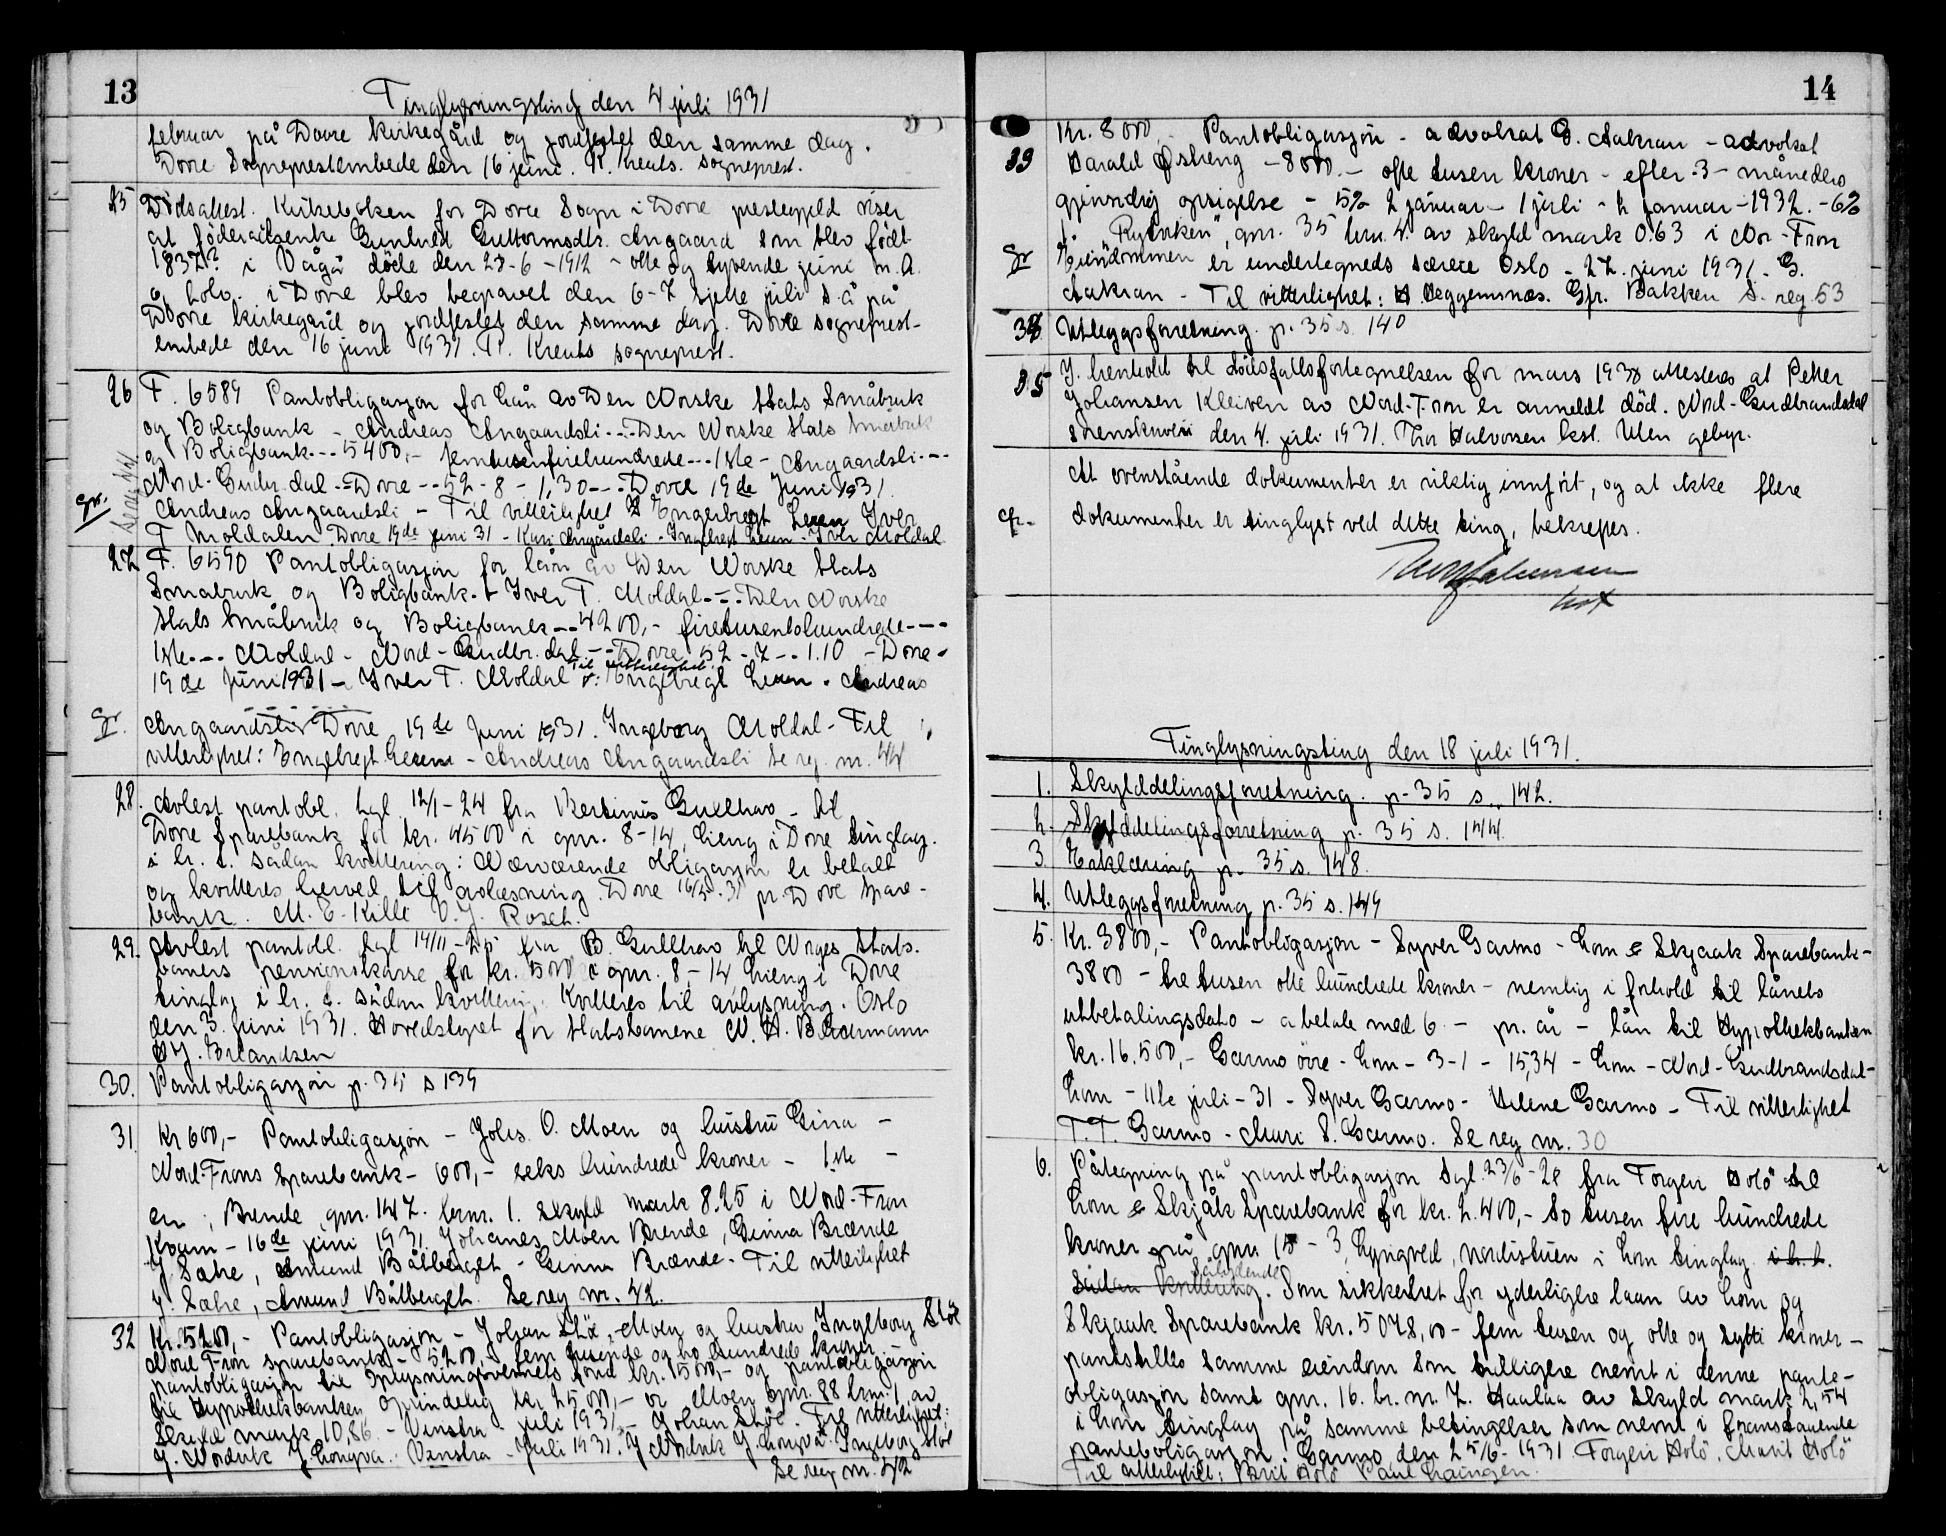 13
Tinglysningsting den 4 juli 1931
februar på Dovre kirkegård og jordfestet den samme dag.
Dovre Sogneprestembede den 16 juni. R. Kreuts. sogneprest.
25 Dødsattest. Kirkeboken for Dovre Sogn i Dovre prestegjeld viser
at föderådsenke Gunhild Guttormsdtr. Angaard som blev födt
1832? i Vågå döde den 28-6-1912 - otte og tyvende juni m.a.
o, tolv. i Dovre blev begravet den 6-7 sjette juli s.å på
Dovre kirkegård og jordfestet den samme dag. Dovre sogneprest-
embede den 16 juni 1931. R. Kreuts sogneprest.
26 F. 6589 Pantobligasjon for lån av Den Norske Stats Småbruk
og Boligbank - Andreas Angaardsli --- Den Norske Stats Småbruk
og Boligbank --- 5400,- femtusenfirehundrede --- 1ste - Angaardsli ---
Nord-Gudbr.dal -- Dovre -- 52 - 8 - 1,30 --- Dovre 19de Juni 1931.
gr. Andreas Angaardsli - Til vitterlighet Engebregt Leren Iver
F Moldalen Dovre 19de juni 31 - Kari Angårdsli - Ingebregt Leren - Iver Moldal
27 F. 6590 Pantobligasjon for lån av Den Norske Stats
Småbruk og Boligbank - Iver F. Moldal --- Den Norske
Stats Småbruk og Boligbank -- 4200,- firetusentohundrede ---
1ste --- Moldal - Nord-Gudbr.dal -- Dovre 52 - 7 -- 1.10 - Dovre -
Til vitterlighet
19de Juni 1931 - Iver F. Moldal Engebregt Leren - Andreas
gr. Angaardsli Dovre 19de Juni 1931. Ingeborg Moldal - Til
vitterlighet: Engebregt Leren - Andreas Angaardsli Se reg. nr. 44
28. Avlest pantobl. tgl. 12/1-24 fra Bertinius Gullhav til
Dovre Sparebank for kr. 4500 i gnr. 8-14, Lieng i Dovre tinglag.
i h. t. sådan kvittering: Nærværende obligasjon er betalt
og kvitteres herved til avlæsning. Dovre 16/5-31 pr. Dovre Spare-
bank. M. E. Kille O. J. Rosct.
29. Avlest pantobl. tgl 14/11-25 fra B. Gullhav til Norges Stats-
baners pensionskasse for kr. 500 i gnr. 8-14 Lieng i Dovre
tinglag i h. t. sådan kvittering. Kvitteres til avlysning. Oslo
den 3. juni 1931. Hovedstyret for Statsbanene N. H.
J. Erlandsen
30. Pantobligasjon p. 35 s 139
31 Kr 600,- Pantobligasjon - Johs. O. Moen og hustru Gina -
Nord-Frons Sparebank - 600,- seks hundrede kroner - 1ste -
en, Brende gnr. 147. brnr. 1. skyld mark 8.25 i Nord-Fron
Kvam - 16de juni 1931. Johanes Moen Brende, Ginna Brænde
J. Sæhre, Amund Bålberget - Ginna Brænde - Til vitterlighet
J. Sæhre, Amund Bålberget. Se reg nr. 42.
32 Kr. 5200,- Pantobligasjon - Johan Stöe, Moen og hustru Ingeborg Stöe
Nord Fron sparebank - 5200,- fem tusende og to hundrede kroner
pantobligasjon til Oplysningsvesenets fond kr. 1500,- og pantobligasjon
til Hypothekbanken oprindelig kr 2500,- or Moen gnr. 88 brnr. 1 av
Skyld mark 10,86. - Vinstra - juli 1931 - Johan Stöe. Til vitterlighet:
J. Nordvik J. Longva. Vinstra - Juli 1931. J Nordvik J. Longva Ingeborg Stöe
Se reg nr. 42
14
33 Kr. 8000,- Pantobligasjon - advokat G. Aakran - advokat
Harald Östeng - 8000.- otte tusen kroner - efter -3- måneders
gjensidig opsigelse - 5% 2 januar - 1 juli - 2 januar - 1932. - 6%
gnr. 35 brn. 4. av skyld mark 0.63 i Nor-Fron
gr Eiendommen er undertegneds særeie Oslo - 22. juni 1931 - G.
Aakran - Til vitterlighet: Gfr. Bakken S. reg 53
34 Utleggsforretning. p. 35 s. 140
35 I henhold til dödsfallsfortegnelsen for mars 1930 attesteres at Peter
Johansen Kleiven av Nord-Fron er anmeldt död. Nord-Gudbrandsdal
sorenskriveri den 4. juli 1931. Thor Halvorsen kst. Uten gebyr.
At ovenstående dokumenter er riktig innfört, og at ikke flere
dokumenter er tinglyst ved dette ting, bekreftes.
Thor Halvorsen
kst
Tinglysningsting den 18 juli 1931.
1. Skylddelingsforretning. p. 35 s. 142.
2. Skylddelingsforretning p. 35 s. 144.
3. Erklæring p. 35 s. 148.
4. Utleggsforretning p. 35 s. 149
5. Kr. 3800,- Pantobligasjon - Syver Garmo - Lom & Skjaak Sparebank -
3800 - tre tusen otte hundrede kroner - nemlig i forhold til lånets
utbetalingsdato - a betale med 6 - pr. år - lån til Hypothekbanken
kr. 16.500,- Garmo övre - Lom - 3-1 - 15,34 - Lom - Nord-Gudbrandsdal -
Lom - 11te juli - 31 - Syver Garmo - Helene Garmo - Til vitterlighet
T. T. Garmo - Mari S. Garmo. Se reg nr. 30
6. Påtegning på pantobligasjon tgl. 23/6-28 fra Torgeir Holö til
Lom & Skjåk Sparebank for kr. 2.400,- to tusen fire hundrede
kroner på gnr. 18 - 3, Lyngved, nordistuen i Lom tinglag i h. t.
sålydende
sådan kvittering. Som sikkerhet for yderligere laan av Lom og
Skjaak Sparebank kr. 5078,00 - fem tusen og otte og sytti kroner -
pantstilles samme eiendom som tidligere nevnt i denne pante-
obligasjon samt gnr. 16. br. nr. 7. Haalaa av skyld mark 2,54
i Lom tinglag på samme betingelser som nevnt i foranstaaende
panteobligasjon. Garmo den 25/6-1931 Torgeir Holö. Marit Holö
Til vitterlighet: Brit Holö Paul